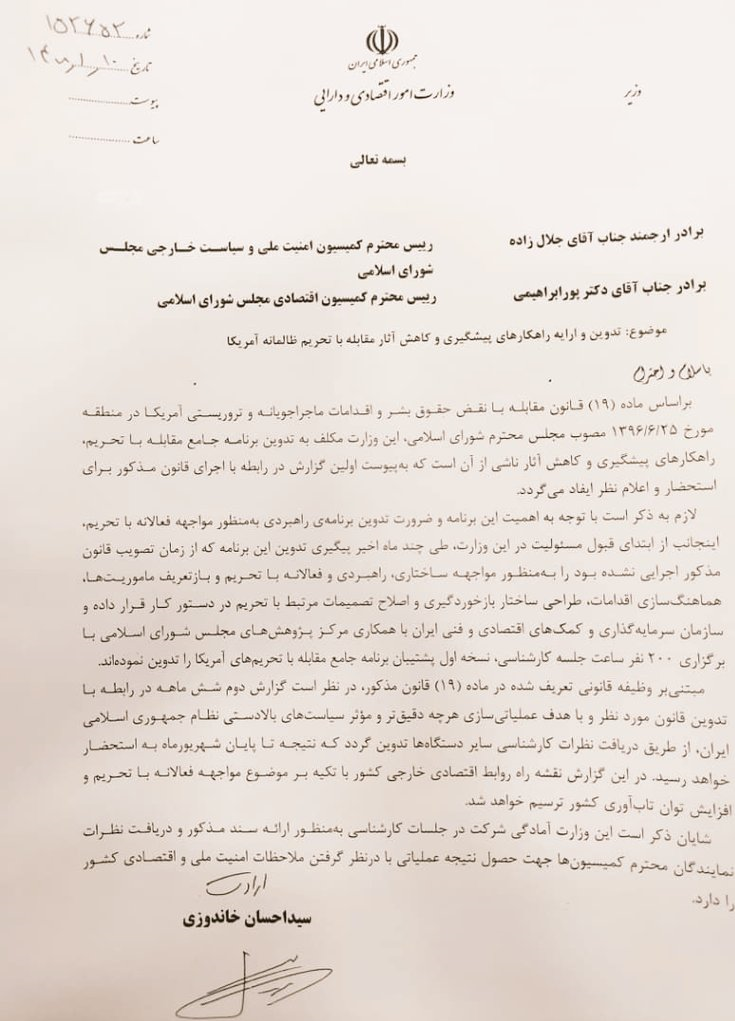 شماره ۱۵۲۶۵۳
تاریخ
پیوست
ساعت
جمهوری اسلامی ایران
وزارت امور اقتصادی و دارایی
وزیر
بسمه تعالی
برادر ارجمند جناب آقای جلال زاده
رییس محترم کمیسیون امنیت ملی و سیاست خارجی مجلس
شورای اسلامی
برادر جناب آقای دکتر پورابراهیمی
رییس محترم کمیسیون اقتصادی مجلس شورای اسلامی
موضوع: تدوین و ارایه راهکارهای پیشگیری و کاهش آثار مقابله با تحریم ظالمانه آمریکا
با سلام و احترام
براساس ماده (۱۹) قانون مقابله با نقض حقوق بشر و اقدامات ماجراجویانه و تروریستی آمریکا در منطقه
مورخ ۱۳۹۶/۶/۲۵ مصوب مجلس محترم شورای اسلامی، این وزارت مکلف به تدوین برنامه جامع مقابله با تحریم،
راهکارهای پیشگیری و کاهش آثار ناشی از آن است که به‌پیوست اولین گزارش در رابطه با اجرای قانون مذکور برای
استحضار و اعلام نظر ایفاد می‌گردد.
لازم به ذکر است با توجه به اهمیت این برنامه و ضرورت تدوین برنامه‌ی راهبردی به‌منظور مواجهه فعالانه با تحریم،
اینجانب از ابتدای قبول مسئولیت در این وزارت، طی چند ماه اخیر پیگیری تدوین این برنامه که از زمان تصویب قانون
مذکور اجرایی نشده بود را به‌منظور مواجهه ساختاری، راهبردی و فعالانه با تحریم و بازتعریف ماموریت‌ها،
هماهنگ‌سازی اقدامات، طراحی ساختار بازخوردگیری و اصلاح تصمیمات مرتبط با تحریم در دستور کار قرار داده و
سازمان سرمایه‌گذاری و کمک‌های اقتصادی و فنی ایران با همکاری مرکز پژوهش‌های مجلس شورای اسلامی با
برگزاری ۲۰۰ نفر ساعت جلسه کارشناسی، نسخه اول پشتیبان برنامه جامع مقابله با تحریم‌های آمریکا را تدوین نموده‌اند.
مبتنی‌بر وظیفه قانونی تعریف شده در ماده (۱۹) قانون مذکور، در نظر است گزارش دوم شش ماهه در رابطه با
تدوین قانون مورد نظر و با هدف عملیاتی‌سازی هرچه دقیق‌تر و مؤثر سیاست‌های بالادستی نظام جمهوری اسلامی
ایران، از طریق دریافت نظرات کارشناسی سایر دستگاه‌ها تدوین گردد که نتیجه تا پایان شهریورماه به استحضار
خواهد رسید. در این گزارش نقشه راه روابط اقتصادی خارجی کشور با تکیه بر موضوع مواجهه فعالانه با تحریم و
افزایش توان تاب‌آوری کشور ترسیم خواهد شد.
شایان ذکر است این وزارت آمادگی شرکت در جلسات کارشناسی به‌منظور ارائه سند مذکور و دریافت نظرات
نمایندگان محترم کمیسیون‌ها جهت حصول نتیجه عملیاتی با درنظر گرفتن ملاحظات امنیت ملی و اقتصادی کشور
را دارد.
سیداحسان خاندوزی